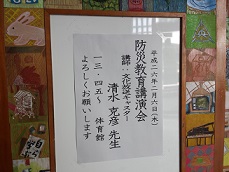 平成二六年二月六日(木)
防災教育講演会
講師 文化放送キャスター
清水 克彦 先生
一三 四五〜 体育館
よろしくお願いします